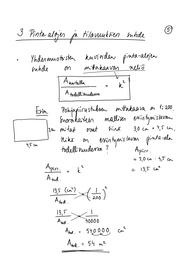 ⑨
3 Pinta-alojen ja tilavuuksien suhde
• Yhdenmuotoisten kuvioiden pinta-alojen
suhde on mittakaavan neliö
A kuvalla / A todellisuudessa = k²
Esim. Pohjapiirustuksen mittakaava on 1:200
Suorakulmion mallisen
mitat ovat siinä 3,0 cm × 4,5 cm.
Mikä on pinta-ala
todellisuudessa?
4,5 cm
A tod. = k²
= 3,0 cm · 4,5 cm
= 13,5 cm²
13,5 (cm²) / A tod. = (1/200)²
13,5 / A tod. = 1/40000
A tod. = 540000 cm²
A tod. = 54 m²